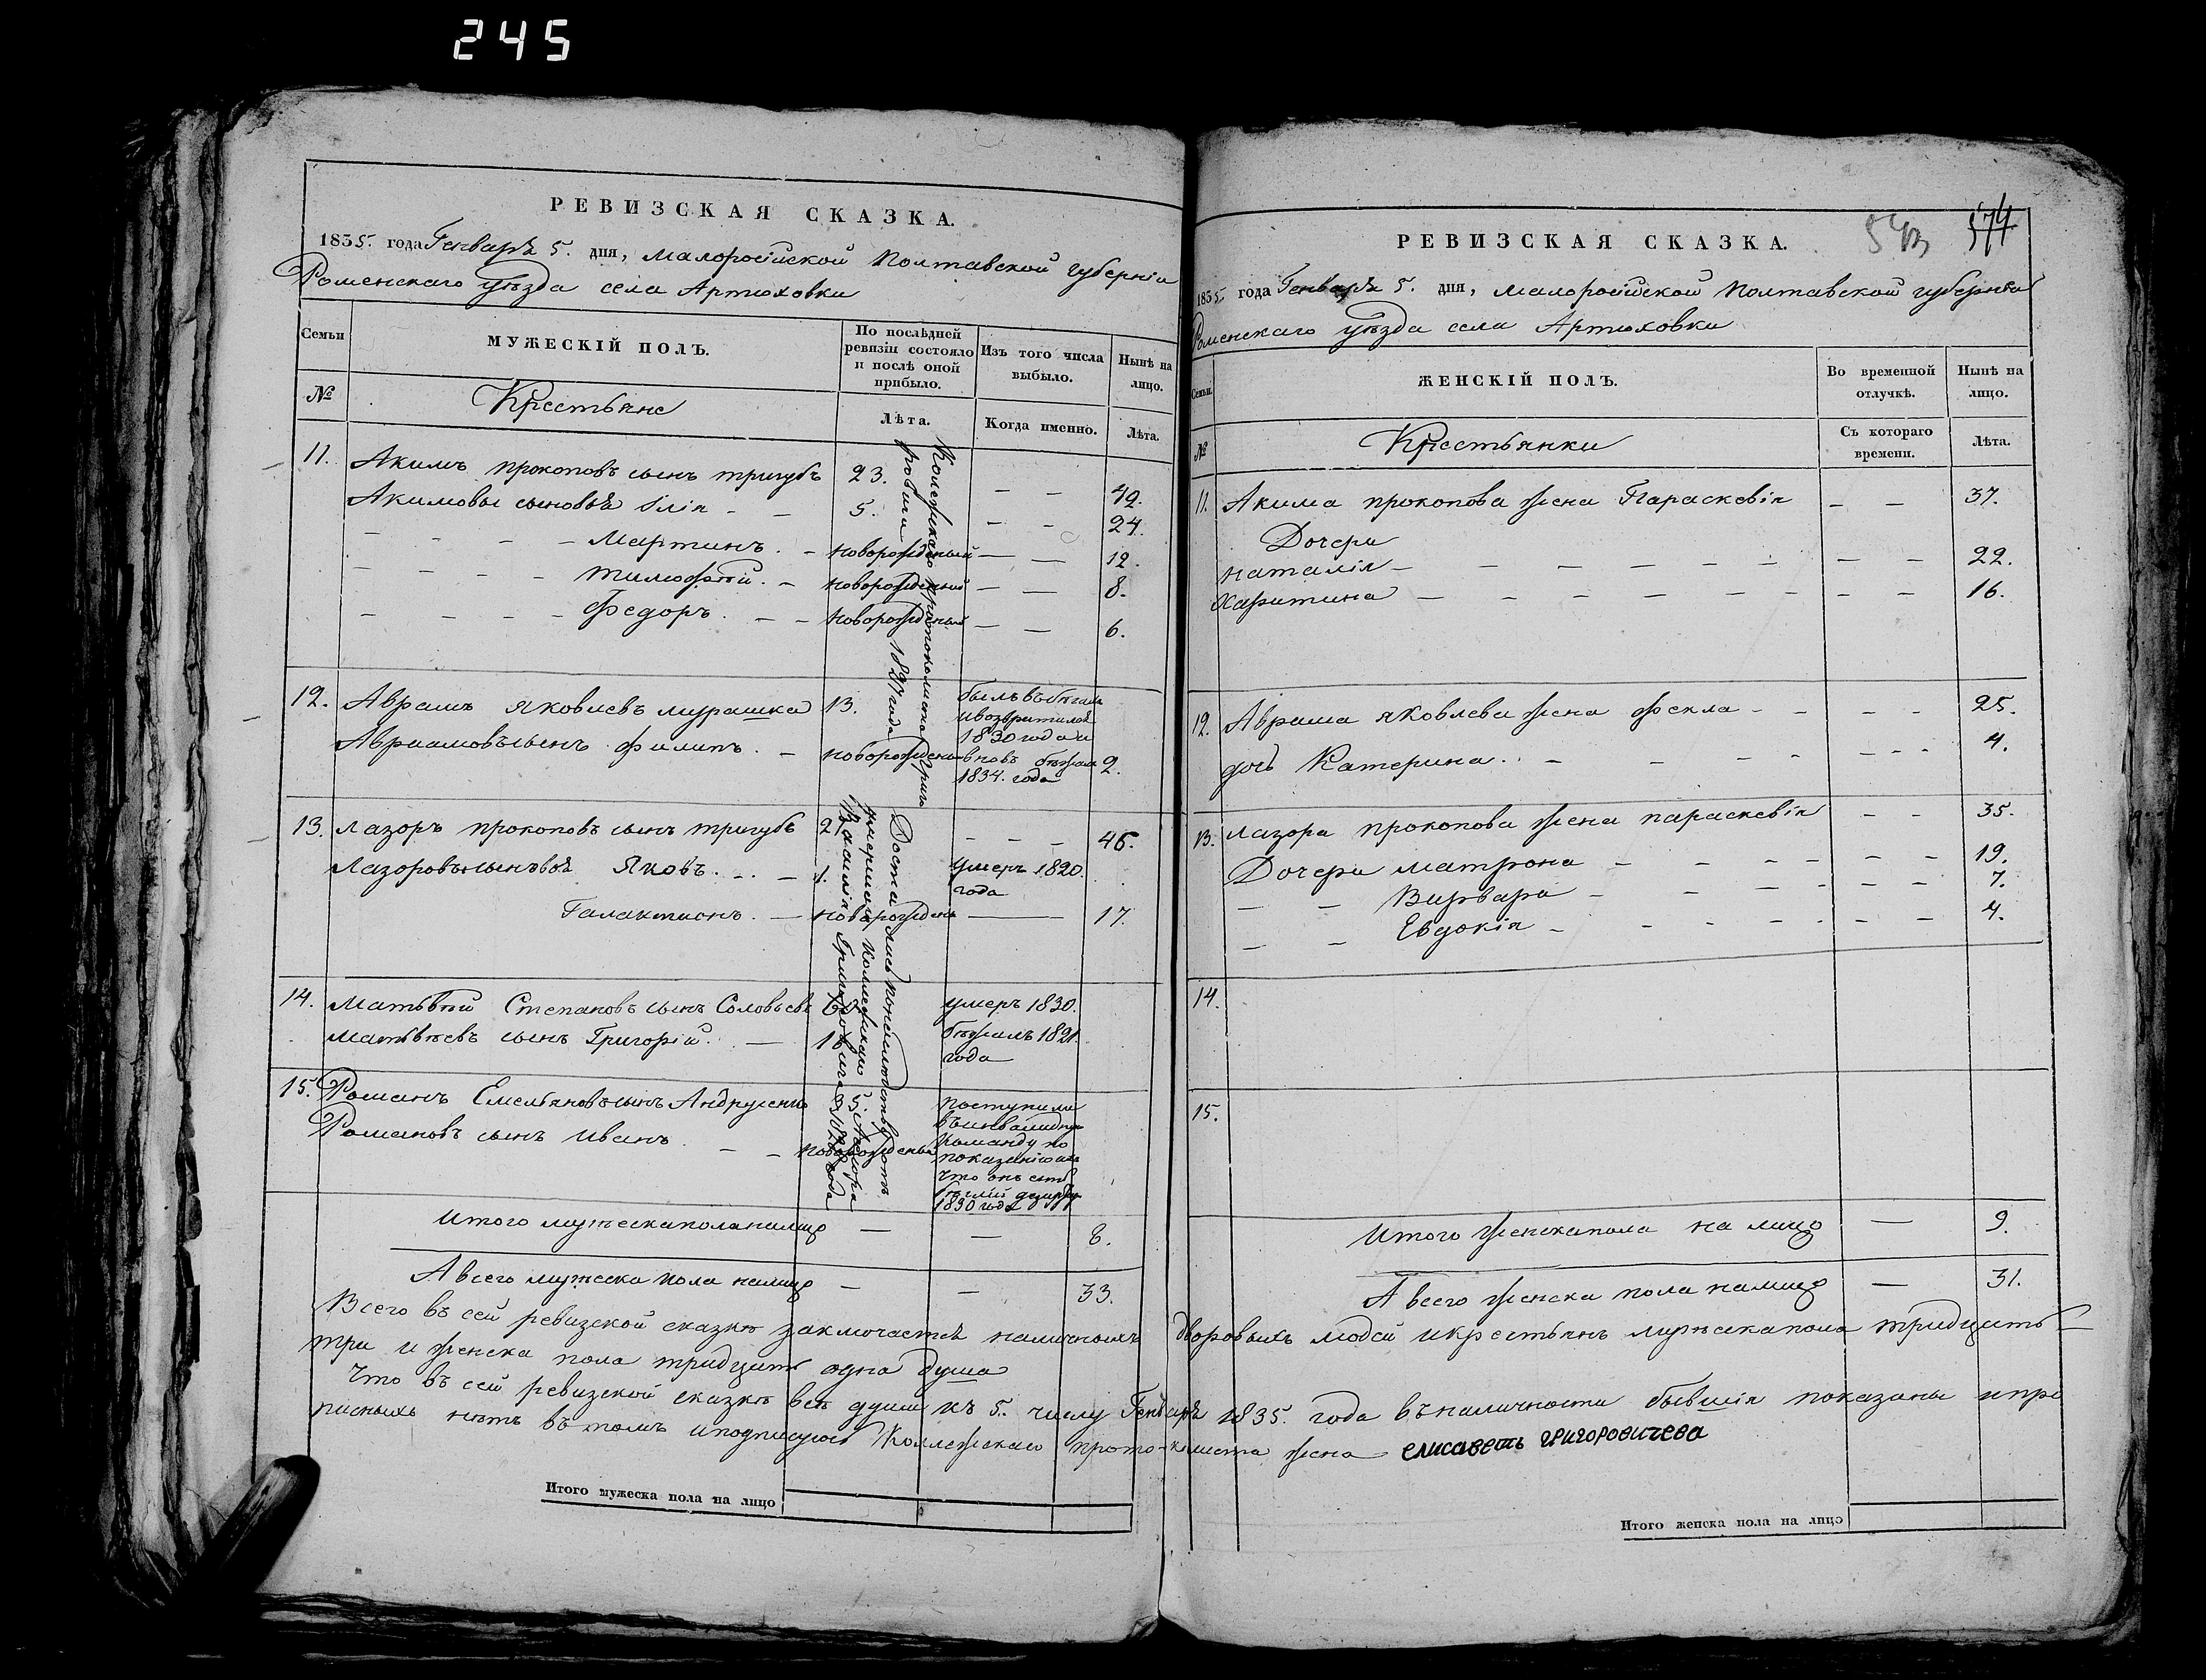 245
РЕВИЗСКАЯ СКАЗКА.
1835. года Генваря 5. дня, Малоросiйской Полтавской губернiи
Роменскаго уѣзда села Артюховки
Семьи
МУЖЕСКIЙ ПОЛЪ.
По послѣдней ревизiи состояло и послѣ оной прибыло.
Изъ того числа выбыло.
Нынѣ на лицо.
№
Крестьяне
Лѣта.
Когда именно.
Лѣта.
11. Акимъ прокоповъ сынъ тригубъ 23. — — 42.
Акимовы сыновья Iлiя — — 5. — — 24.
— — — — Мартинъ. — новорожденый — — 12.
— — — — тимофѣй. — новорожденый — — 8.
— — — — Федоръ. — — новорожденый — — 6.
12. Аврамъ яковлевъ мурашка 13. былъ въ бѣгахъ и возвратился 1830 года и вновь бѣжалъ 1834. года
Авраамовъ сынъ филипъ. — новорожденъ 2.
13. Лазоръ прокоповъ сынъ тригубъ — — — 46.
Лазоровы сыновья Яковъ. — — 1. умеръ 1820. года
Галактионъ. — новорожденъ — — 17.
14. Матвѣй Степановъ сынъ Соловьевъ умеръ 1830.
Матвѣевъ сынъ Григорiй. — бѣжалъ 1821. года
15. Романъ Емельяновъ сынъ Андрусенко поступили въ инвалидную команду по показанiю ихъ что онъ есть 1830 года
Романовъ сынъ Иванъ — — новорожденъ
Колежскаго протоколиста Григоровича 1827 года
Достались по наслѣдству отъ умершаго Колежскаго
Итого мужеска пола налицо — — 8.
А всего мужеска пола налицо — — 33.
Всего въ сей ревизской сказкѣ заключается наличныхъ дворовыхъ людей и крестьянъ мужеска пола тридцать
три и женска пола тридцать одна душа
Что въ сей ревизской сказкѣ всѣ души къ 5. числу Генваря 1835. года въ наличности бывшiя показаны и про
писныхъ нѣтъ въ томъ и подписуюсь Коллежскаго протоколиста жена елисаветъ григоровичева
Итого мужеска пола на лицо
574
РЕВИЗСКАЯ СКАЗКА.
1835. года Генваря 5. дня, Малоросiйской Полтавской губернiи
Роменскаго уѣзда села Артюховки
Семьи.
ЖЕНСКIЙ ПОЛЪ.
Во временной отлучкѣ.
Нынѣ на лицо.
№
Крестьянки
Съ котораго времени.
Лѣта.
11. Акима прокопова жена Параскевiя — — 37.
Дочери
наталiя — — — — — — — — 22.
Харитина — — — — — — — — 16.
12. Аврама яковлева жена Фекла — — — — 25.
дочь Катерина. — — — — — — 4.
13. Лазора прокопова жена параскевiя — — 35.
Дочери матрона — — — — — — 19.
— — Варвара — — — — — — 7.
— — Евдокiя — — — — — — 4.
14.
15.
Итого женска пола на лицо — 9.
А всего женска пола налицо — 31.
Итого женска пола на лицо